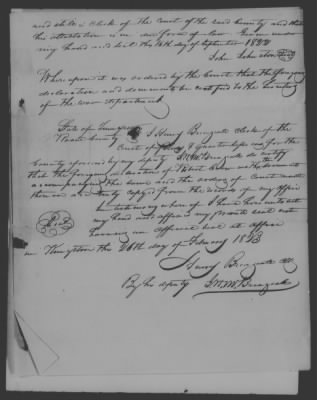 and State is Clerk of the Court of the said County and that
his attestation is in due form of law. Given under
my hand and seal this 16th day of September 1822
John Johnston
Whereupon it was ordered by the Court that the foregoing
declaration and documents be certified to the Secretary
of the war department
State of Tennessee
Roane County I Henry Breazeale Clerk of the
Court of pleas & quarter Sessions for the
County aforesaid by my deputy do certify
that the foregoing declaration of Robert with the documents
accompanying the same and the orders of Court made
thereon are truly copied from the records of my office
In testimony whereof I have hereunto set
my hand and affixed my private seal not
having an official seal at office
in Kingston the 26th day of February 1823
Henry Breazeale Clk
By his deputy